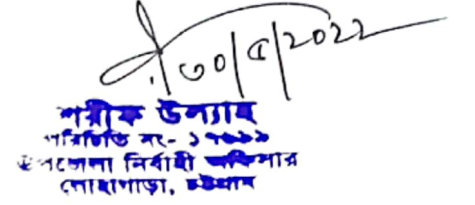 ৩০/৫/২০২২
শরীফ উল্যাহ
পরিচিতি নং-
উপজেলা নির্বাহী অফিসার
লোহাগাড়া, চট্টগ্রাম